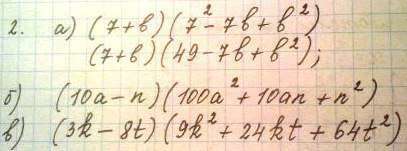 2. а) (7+в)(7²-7в+в²)
(7+в)(49-7в+в²);
б) (10a-n)(100a²+10an+n²)
в) (3k-8t)(9k²+24kt+64t²)